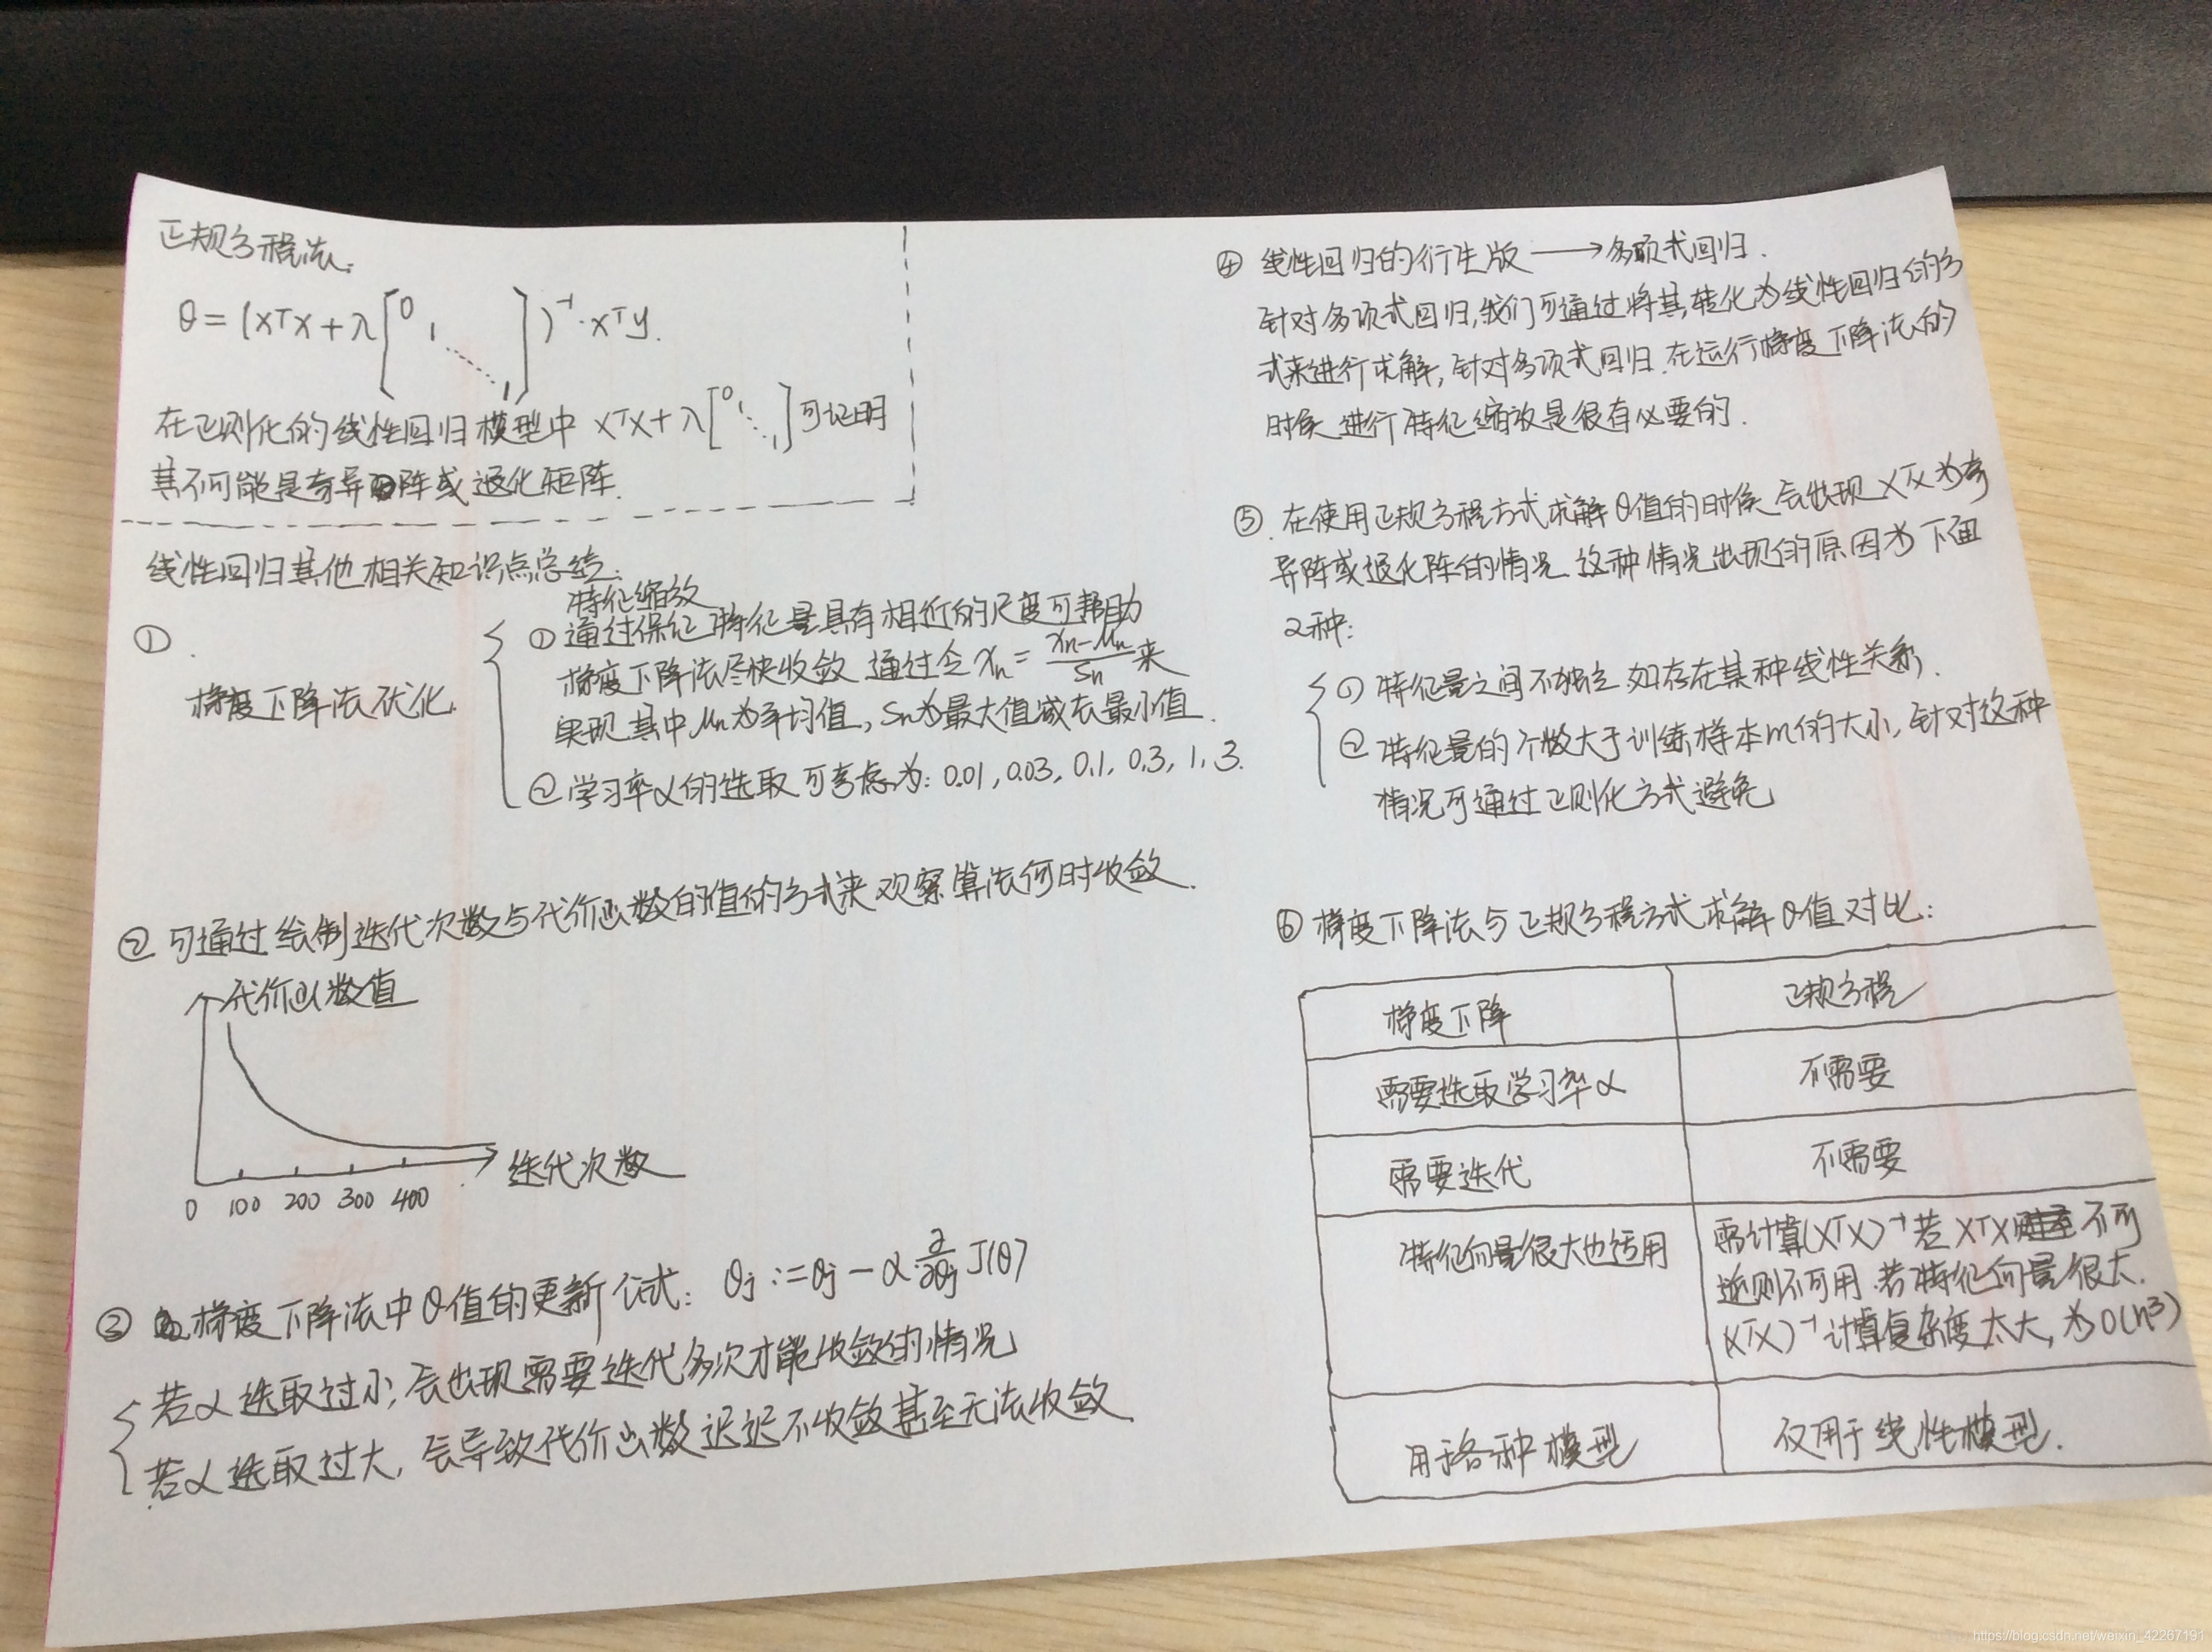 正规方程法:
θ = (XᵀX + λ[0 1 ⋱ 1])⁻¹·Xᵀy.
在正则化的线性回归模型中 XᵀX + λ[0 1 ⋱ 1] 可证明
其不可能是奇异阵或退化矩阵.
线性回归其他相关知识点总结:
①.
梯度下降法优化
特征缩放
① 通过保征特征量具有相近的尺度可帮助
梯度下降法尽快收敛 通过令 xn = (xn-μn)/Sn 来
实现 其中 μn 为平均值, Sn为最大值减去最小值.
② 学习率α的选取可考虑为: 0.01, 0.03, 0.1, 0.3, 1, 3.
② 可通过绘制迭代次数与代价函数的值的方式来观察算法何时收敛.
代价函数值
迭代次数
0 100 200 300 400
③ 梯度下降法中θ值的更新公式: θj := θj - α ∂/∂θj J(θ)
若α选取过小, 会出现需要迭代多次才能收敛的情况
若α选取过大, 会导致代价函数迟迟不收敛甚至无法收敛
④ 线性回归的衍生版 ⟶ 多项式回归.
针对多项式回归,我们可通过将其转化为线性回归的方
式来进行求解, 针对多项式回归.在运行梯度下降法的
时候 进行特征缩放是很有必要的.
⑤. 在使用正规方程方式求解θ值的时候 会出现 XᵀX 为奇
异阵或退化阵的情况. 这种情况出现的原因为下面
2种:
① 特征量之间不独立 如存在某种线性关系.
② 特征量的个数大于训练样本m的大小, 针对这种
情况可通过正则化方式避免
⑥ 梯度下降法与正规方程方式求解θ值对比:
梯度下降 正规方程
需要选取学习率α 不需要
需要迭代 不需要
特征向量很大也适用 需计算(XᵀX)⁻¹若 XᵀX 不可
逆则不可用.若特征向量很大.
(XᵀX)⁻¹计算复杂度太大, 为O(n³)
用于各种模型 仅用于线性模型.
https://blog.csdn.net/weixin_42267191